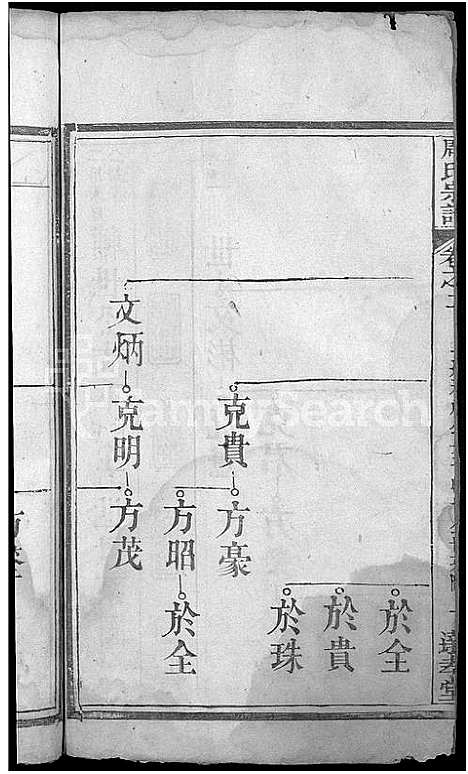 周氏宗譜
卷之二
於全
於貴
於珠
克貴
方豪
方昭
於全
文炳
克明
方茂